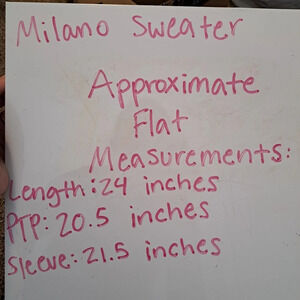 Milano Sweater
Approximate
Flat
Measurements:
Length: 24 inches
PTP: 20.5 inches
Sleeve: 21.5 inches